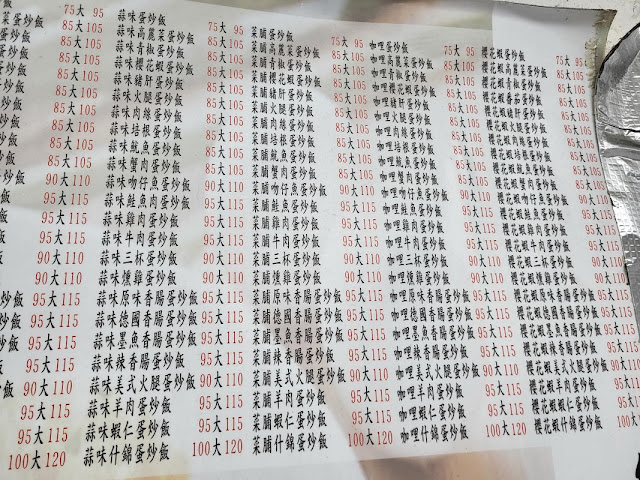 75大95
85大105
85大105
85大105
85大105
85大105
85大105
85大105
85大105
85大105
90大110
95大115
95大115
95大115
95大115
90大110
95大115
95大115
95大115
95大115
90大110
95大115
95大115
100大120
蒜味蛋炒飯 75大95
蒜味高麗菜蛋炒飯 85大105
蒜味青椒蛋炒飯 85大105
蒜味櫻花蝦蛋炒飯 85大105
蒜味豬肝蛋炒飯 85大105
蒜味火腿蛋炒飯 85大105
蒜味肉絲蛋炒飯 85大105
蒜味培根蛋炒飯 85大105
蒜味魷魚蛋炒飯 85大105
蒜味蟹肉蛋炒飯 85大105
蒜味吻仔魚蛋炒飯 90大110
蒜味鮭魚蛋炒飯 95大115
蒜味雞肉蛋炒飯 95大115
蒜味牛肉蛋炒飯 95大115
蒜味三杯蛋炒飯 95大115
蒜味燻雞蛋炒飯 90大110
蒜味原味香腸蛋炒飯 95大115
蒜味德國香腸蛋炒飯 95大115
蒜味墨魚香腸蛋炒飯 95大115
蒜味辣香腸蛋炒飯 95大115
蒜味美式火腿蛋炒飯 90大110
蒜味羊肉蛋炒飯 95大115
蒜味蝦仁蛋炒飯 95大115
蒜味什錦蛋炒飯 100大120
菜脯蛋炒飯 75大95
菜脯高麗菜蛋炒飯 85大105
菜脯青椒蛋炒飯 85大105
菜脯櫻花蝦蛋炒飯 85大105
菜脯豬肝蛋炒飯 85大105
菜脯火腿蛋炒飯 85大105
菜脯肉絲蛋炒飯 85大105
菜脯培根蛋炒飯 85大105
菜脯魷魚蛋炒飯 85大105
菜脯蟹肉蛋炒飯 85大105
菜脯吻仔魚蛋炒飯 90大110
菜脯鮭魚蛋炒飯 95大115
菜脯雞肉蛋炒飯 95大115
菜脯牛肉蛋炒飯 95大115
菜脯三杯蛋炒飯 95大115
菜脯燻雞蛋炒飯 90大110
菜脯原味香腸蛋炒飯 95大115
菜脯德國香腸蛋炒飯 95大115
菜脯墨魚香腸蛋炒飯 95大115
菜脯辣香腸蛋炒飯 95大115
菜脯美式火腿蛋炒飯 90大110
菜脯羊肉蛋炒飯 95大115
菜脯蝦仁蛋炒飯 95大115
菜脯什錦蛋炒飯 100大120
咖哩蛋炒飯 75大95
咖哩高麗菜蛋炒飯 85大105
咖哩青椒蛋炒飯 85大105
咖哩櫻花蝦蛋炒飯 85大105
咖哩豬肝蛋炒飯 85大105
咖哩火腿蛋炒飯 85大105
咖哩肉絲蛋炒飯 85大105
咖哩培根蛋炒飯 85大105
咖哩魷魚蛋炒飯 85大105
咖哩蟹肉蛋炒飯 85大105
咖哩吻仔魚蛋炒飯 90大110
咖哩鮭魚蛋炒飯 95大115
咖哩雞肉蛋炒飯 95大115
咖哩牛肉蛋炒飯 95大115
咖哩三杯蛋炒飯 95大115
咖哩燻雞蛋炒飯 90大110
咖哩原味香腸蛋炒飯 95大115
咖哩德國香腸蛋炒飯 95大115
咖哩墨魚香腸蛋炒飯 95大115
咖哩辣香腸蛋炒飯 95大115
咖哩美式火腿蛋炒飯 90大110
咖哩羊肉蛋炒飯 95大115
咖哩蝦仁蛋炒飯 95大115
咖哩什錦蛋炒飯 100大120
櫻花蝦蛋炒飯 75大95
櫻花蝦高麗菜蛋炒飯 85大105
櫻花蝦青椒蛋炒飯 85大105
櫻花蝦番茄蛋炒飯 85大105
櫻花蝦豬肝蛋炒飯 85大105
櫻花蝦火腿蛋炒飯 85大105
櫻花蝦肉絲蛋炒飯 85大105
櫻花蝦培根蛋炒飯 85大105
櫻花蝦魷魚蛋炒飯 85大105
櫻花蝦蟹肉蛋炒飯 85大105
櫻花蝦吻仔魚蛋炒飯 90大110
櫻花蝦鮭魚蛋炒飯 95大115
櫻花蝦雞肉蛋炒飯 95大115
櫻花蝦牛肉蛋炒飯 95大115
櫻花蝦三杯蛋炒飯 95大115
櫻花蝦燻雞蛋炒飯 90大110
櫻花蝦原味香腸蛋炒飯
櫻花蝦德國香腸蛋炒飯
櫻花蝦墨魚香腸蛋炒飯
櫻花蝦辣香腸蛋炒飯
櫻花蝦美式火腿蛋炒飯
櫻花蝦羊肉蛋炒飯
櫻花蝦蝦仁蛋炒飯
櫻花蝦什錦蛋炒飯